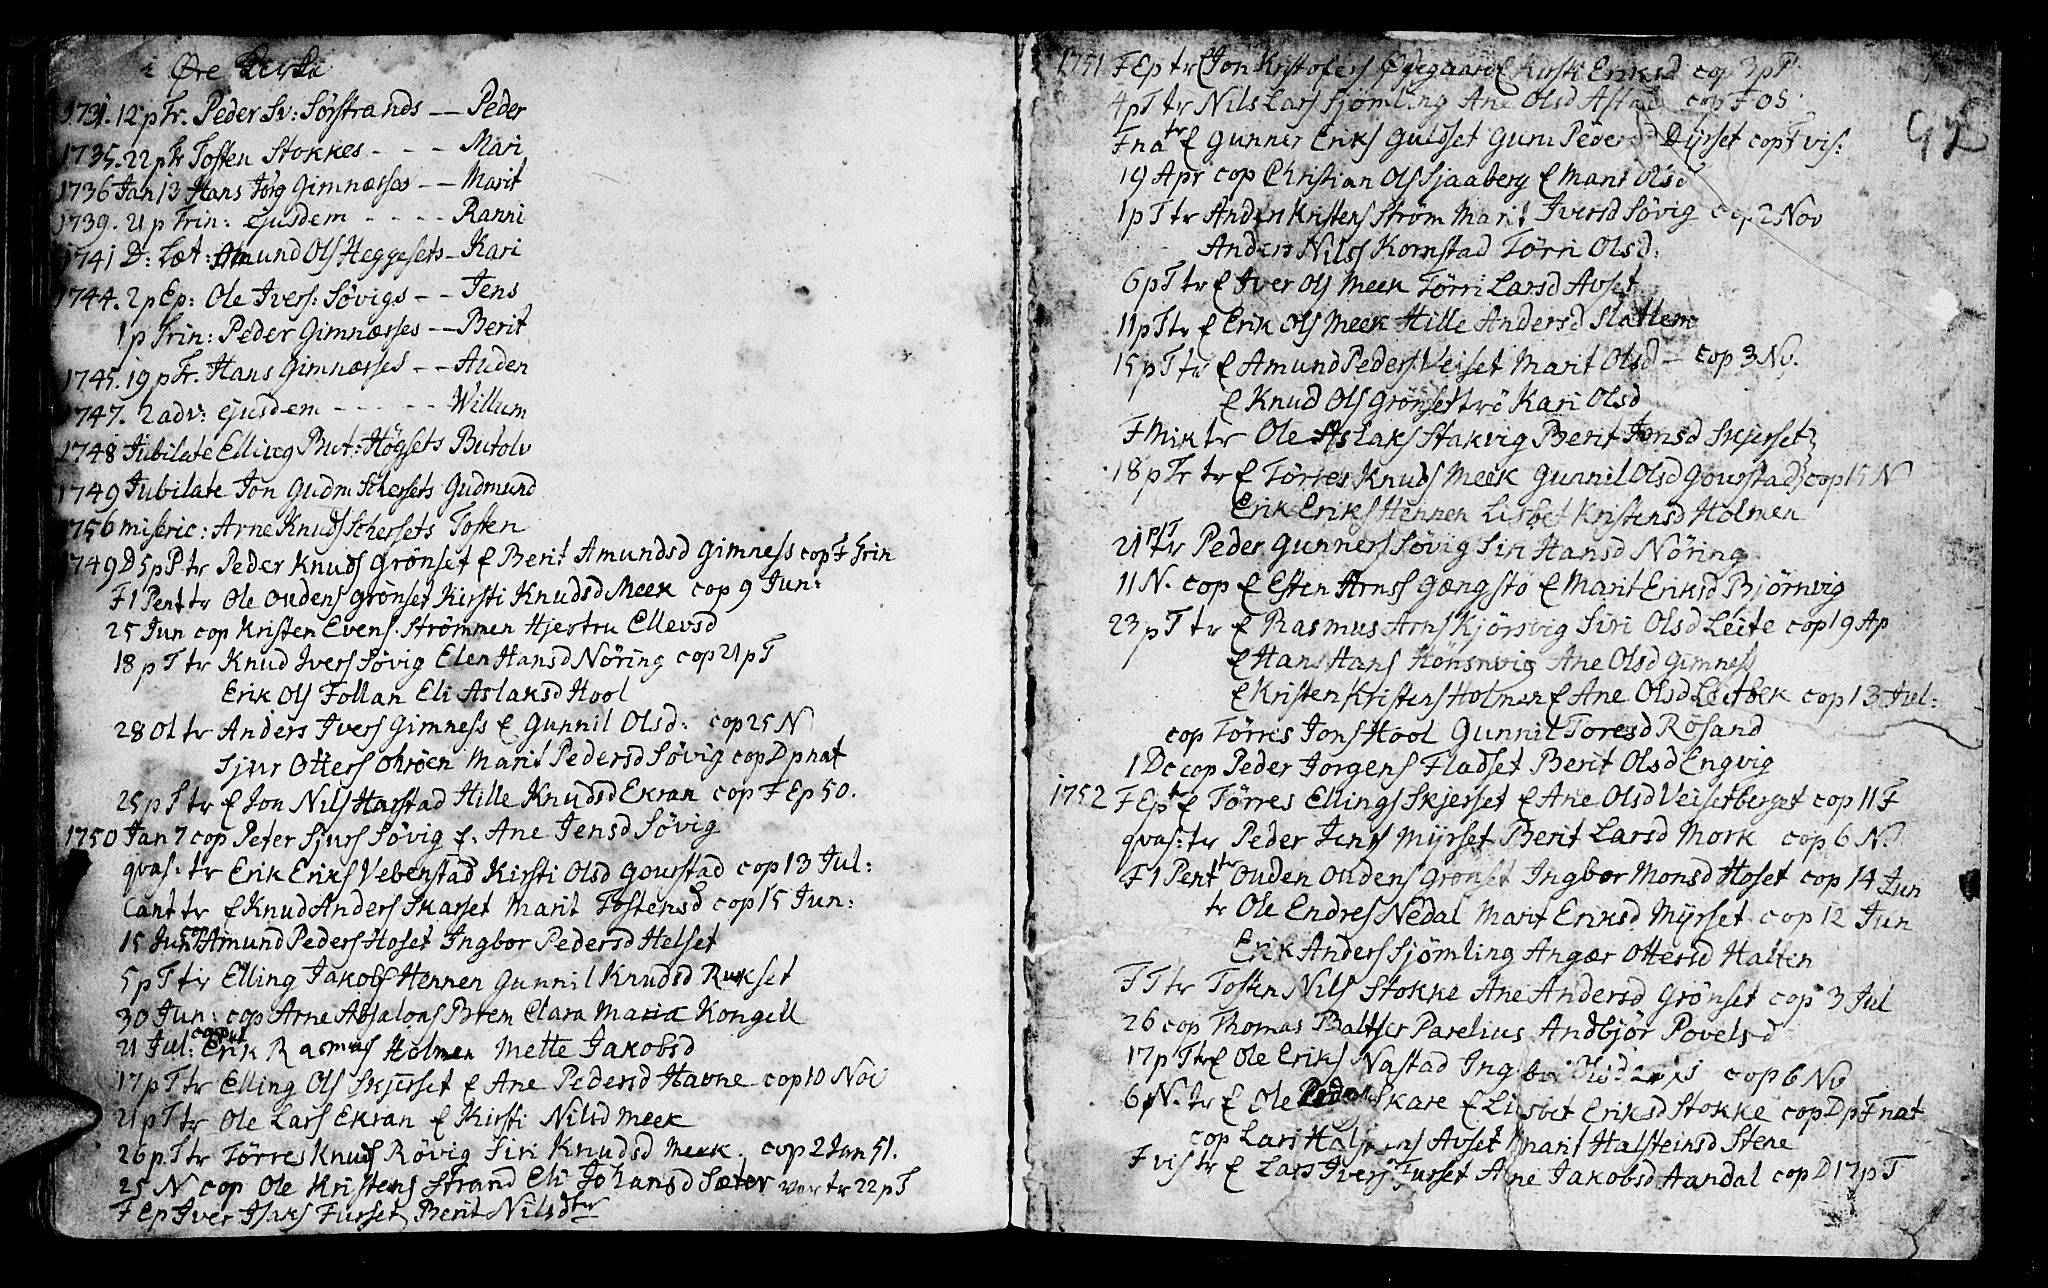 i Øre Kirke
1731. 12 p Tr. Peder Sv: Sørstrands — Peder
1735. 22 p Tr Tosten Stokkes - - - Mari
1736 Jan 13 Hans Jørg Gimnæsses - - Marit
1739. 21 p Trin: ejusdem - - - - Ranni
1741 D: Læt: Amund Ols Heggesets - Kari
1744. 2 p Ep: Ole Ivers: Søvigs - - Jens
1 p Trin: Peder Gimnæsses - - Berit
1745. 19 p Tr. Hans Gimnæsses - - Auden
1747. 2 adv: ejusdem - - - - - Willum
1748 Jubilate Elling But: Høgsets Butolv
1749 Jubilate Jon Gudm Schersets Gudmund
1756 miseric: Arne Knuds Schersets Tosten
1749 D 5 p P tr Peder Knuds Grønset & Berit Amundsd Gimness cop F Trin
F 1 Pent tr Ole Oudens Grønset Kirsti Knudsd Meek cop 9 Jun:
25 Jun cop Kristen Evens Strømmen Hjestru Ellevsd
18 p T tr Knud Ivers Søvig Elen Hansd Nøring cop 21 p T
Erik Ols Follan Eli Aslaksd Hool
28 Ot tr Anders Ivers Gimness & Gunnil Olsd: cop 25 N
Sjur Otters Ohrøen Marit Pedersd Søvig cop D p nat
25 p T tr & Jon Nils Harstad Hille Knudsd Ekran cop F Ep 50.
1750 Jan 7 cop Peter Sjurs Søvig & Ane Jensd Søvig
qvas: tr Erik Eriks Vebenstad Kirsti Olsd Gourstad cop 13 Jul:
Cant tr & Knud Anders Skarset Marit Tostensd cop 15 Jun:
15 Jun Amund Peders Hoset Ingbor Pedersd Helset
5 p T tr Elling Jakobs Hennen Gunnil Knudsd Rukset
30 Jun: cop Arne Absalons Brem Clara Maria Kongell
21 Jul: Erik Rasmus Holmen Mette Jakobsd
17 p T tr Elling Ols Skjerset & Ane Pedersd Havne cop 10 Nov
21 p T tr Ole Lars Ekran & Kirsti Nilsd Meek
26 p. T tr Tørres Knuds Røvig Siri Knudsd Meek. cop 2 Jan 51.
25 N cop Ole Kristens Strand Eli Johansd Sæter var tr 22 p T
F Ep Iver Isaks Furset Berit Nilsdtr
1751 F Ep tr & Jon Kristofers Ødegaard & Kirsti Eriksd cop 3 p P
4 p T tr Nils Lars Sjømling Ane Olsd Astad cop F O S.
F nat tr & Gunner Eriks Guldset Guni Pedersd Dyrset cop F vis:
19 Apr cop Christian Ols Sjaaberg & Marit Olsd
1 p T tr Anders Kristens Strøm Marit Iversd Søvig cop 2 Nov
Anders Nilss Kornstad Tørri Olsd:
6 p T tr & Iver Ols Meek Tørri Larsd Avset
11 p T tr & Erik Ols Meek Hille Andersd Slatlem
15 p T tr & Amund Peders Veiset Marit Olsd — cop 3 No.
& Knud Ols Grønsettrø Kari Olsd
F Mik tr Ole Aslaks Stakvig Berit Jonsd Skjerset
18 p Tr tr & Tørres Knuds Meek Gunnil Olsd Gourstad cop 15 N
Erik Eriks Hennen Lisbet Kristensd Holmen
21 p T tr Peder Gunners Søvig Siri Hansd Nøring
11 N. cop & Esten Arnss Gængstø & Marit Eriksd Bjørnvig
23 p T tr & Rasmus Arns Kjørsvig Siri Olsd Leite cop 19 Ap
& Hans Hans Hønsvig Ane Olsd Gimness
& Kristen Kristens Holmen & Ane Olsd Leitbek cop 13 Jul:
cop Tørres Jons Hool Gunnil Toresd Røsand
1 Dc cop Peder Jorgens Fladset Berit Olsd Engvig
1752 F Ep tr & Tørres Ellings Skjerset & Ane Olsd Veisetberget cop 11 F
qvas: tr Peder Jens Myrset Berit Larsd Mork cop 6 N.
F 1 Pent tr Ouden Oudens Grønset Ingbor Monsd Hoset cop 14 Jun
tr Ole Endres Nedal Marit Eriksd Myrset cop 12 Jun
Erik Anders Sjømling Angær Ottersd Halten
F T tr Tosten Nils Stokke Ane Andersd Grønset cop 3 Jul
26 cop Thomas Baltser Parelius Andbjør Povelsd
17 p T tr & Ole Eriks Nastad cop 6 Nv
6 N. tr & Ole Skare & Lisbet Eriksd Stokke cop D p F nat
cop Lars Avset Marit Halsteinsd Stene
F vis tr & Lars Ivers Furset Ane Jakobsd Aandal cop D 17 p T